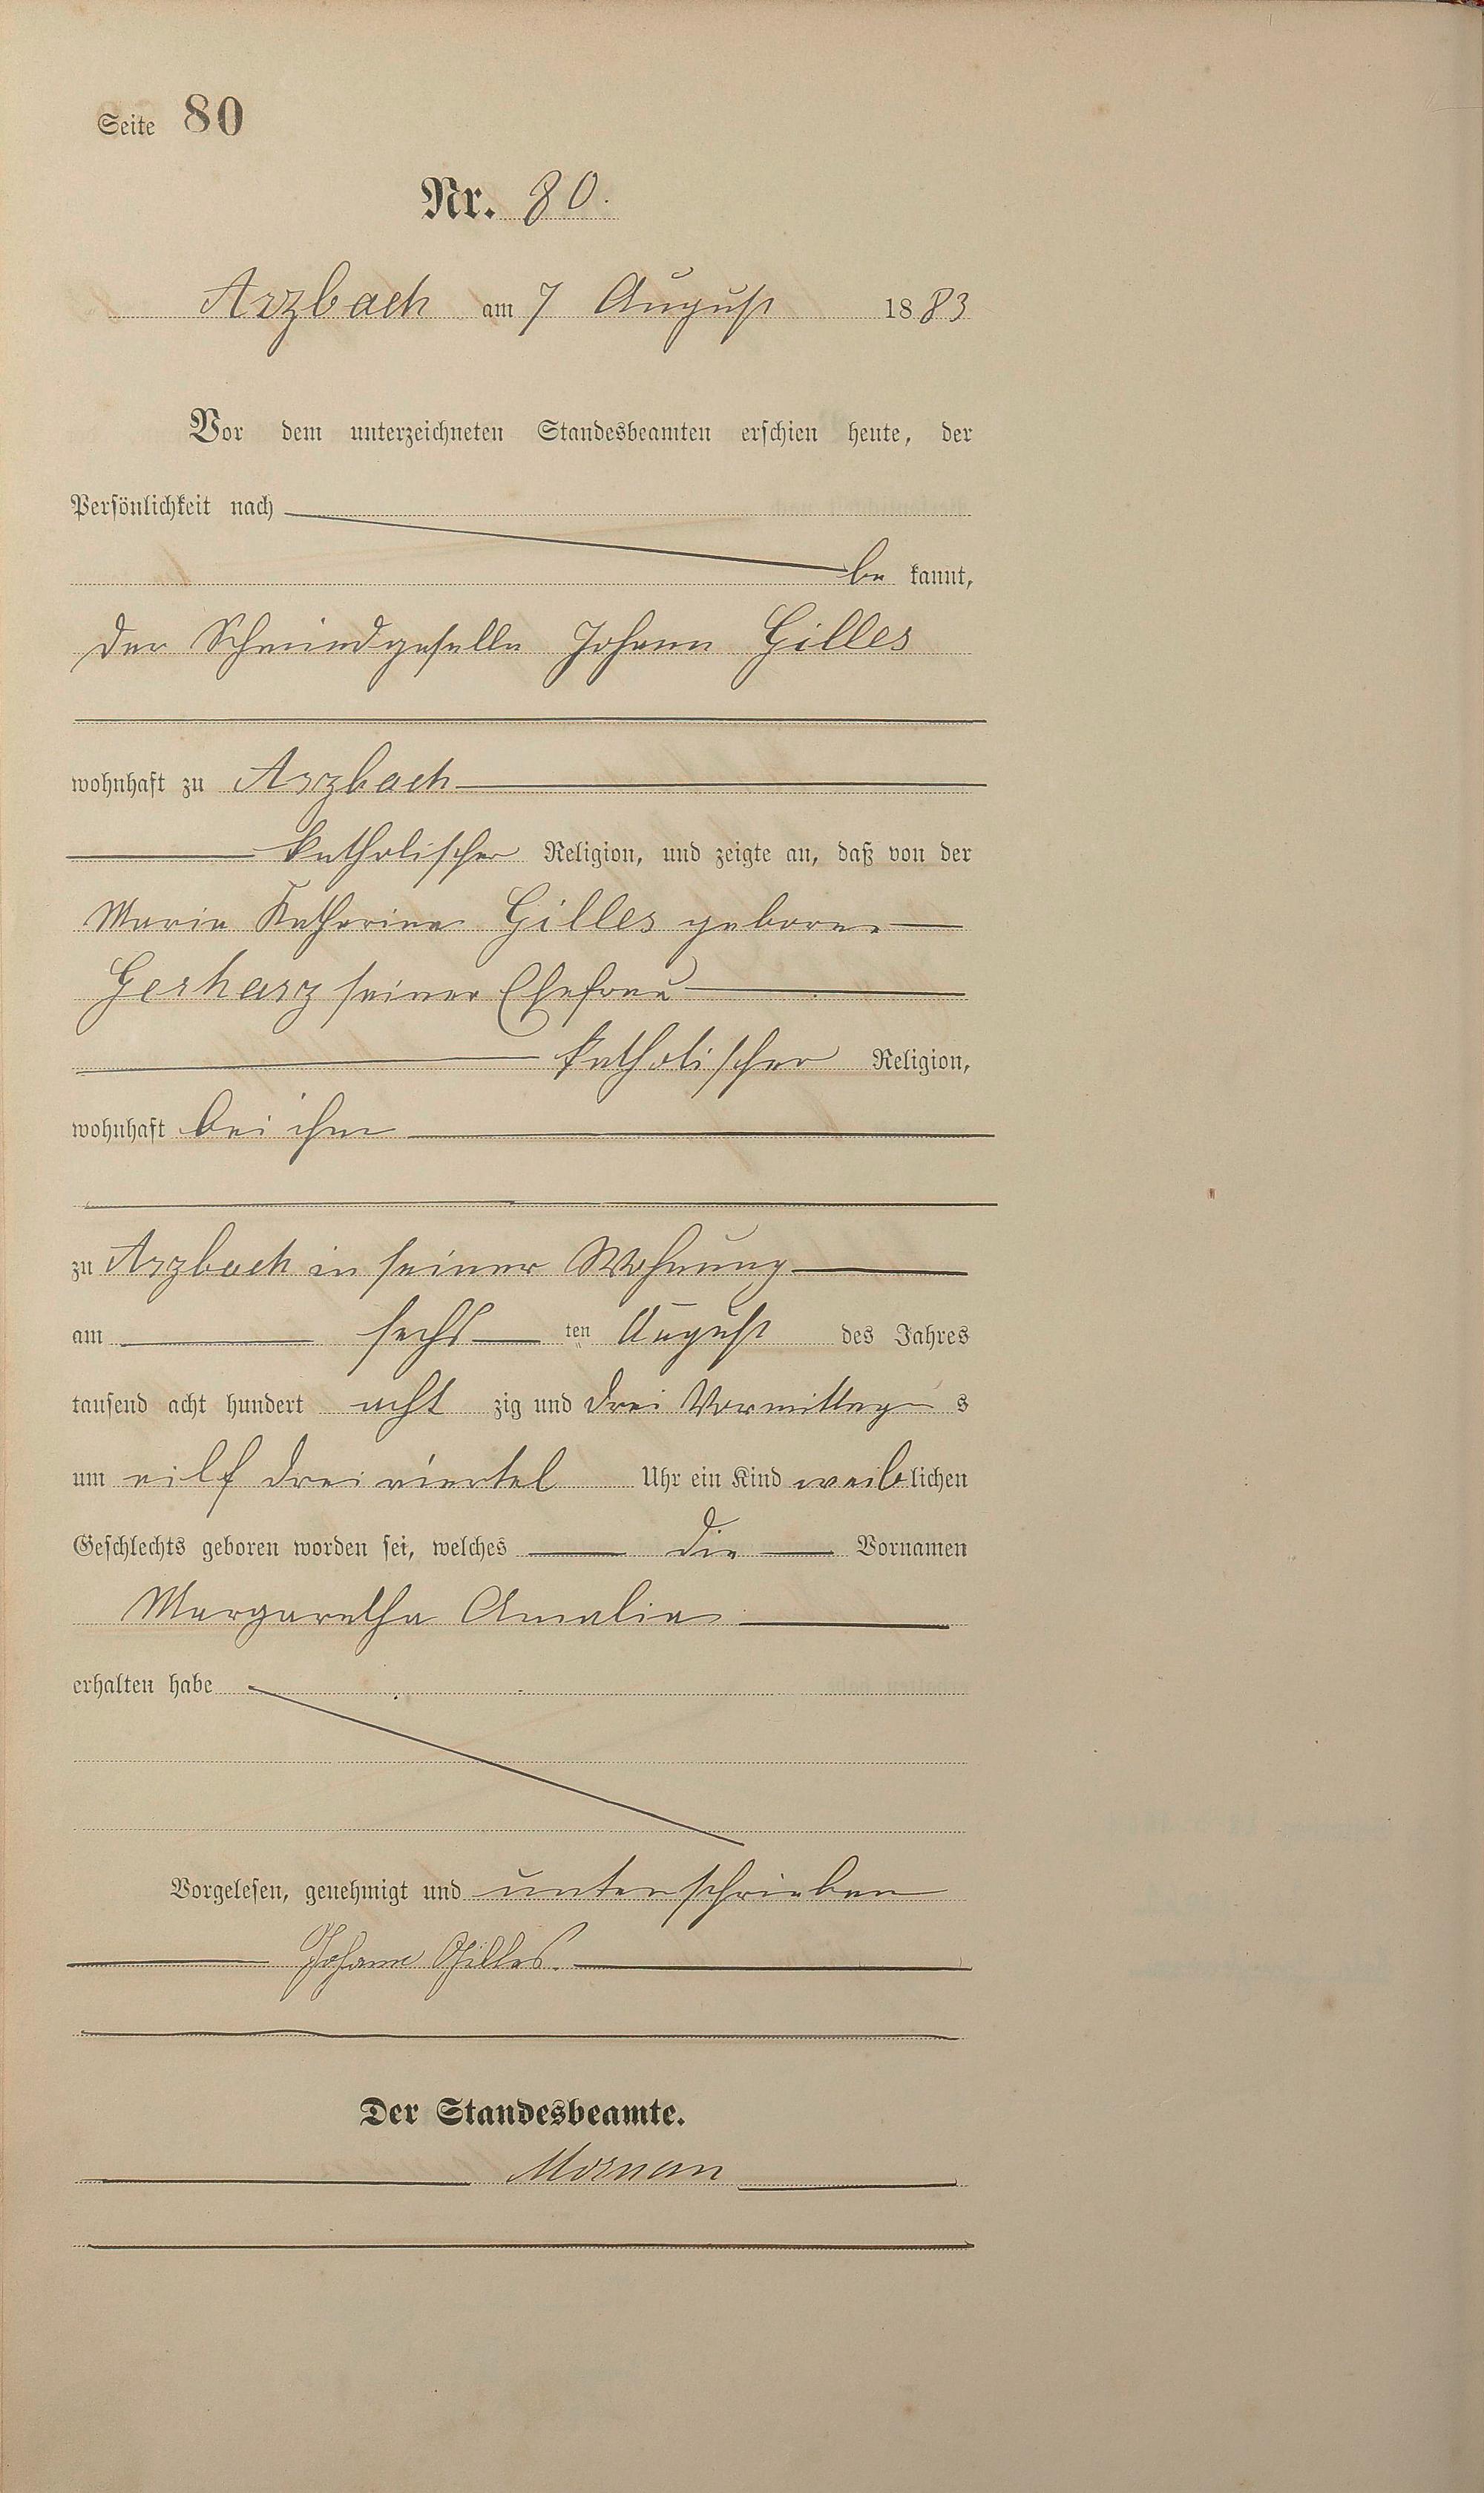 Seite 80
Nr. 80.
Arzbach am 7 August 1883
Vor dem unterzeichneten Standesbeamten erschien heute, der
Persönlichkeit nach
be kannt,
der Schmiedgeselle Johann Gilles
wohnhaft zu Arzbach
katholischer Religion, und zeigte an, daß von der
Maria Katharina Gilles geborne
Gerharz seiner Ehefrau
katholischer Religion,
wohnhaft bei ihm
zu Arzbach in seiner Wohnung
am sechs ten August des Jahres
tausend acht hundert acht zig und drei Vormittag s
um eilf drei viertel Uhr ein Kind weiblichen
Geschlechts geboren worden sei, welches die Vornamen
Margaretha Amalia
erhalten habe
Vorgelesen, genehmigt und unterschrieben
Johann Gilles.
Der Standesbeamte.